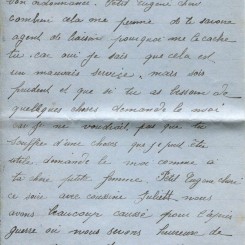 ton ordonnance. Petit Eugène si tu
combien cela me peine de te savoir
agent de liaison pourquoi me le cache
tu. car oui je sais que cela est
un mauvais service, mais sois
prudent et que si tu as besoin de
quelques choses demande le moi
car je ne voudrait pas que tu
souffre d'une choses que je peut être
utile demande le moi comme a
ta chère petite femme. Petit Eugène chéri
ce soir avec cousine Juliette nous
avons beaucoup causé pour l'après
guerre où nous serons heureux de